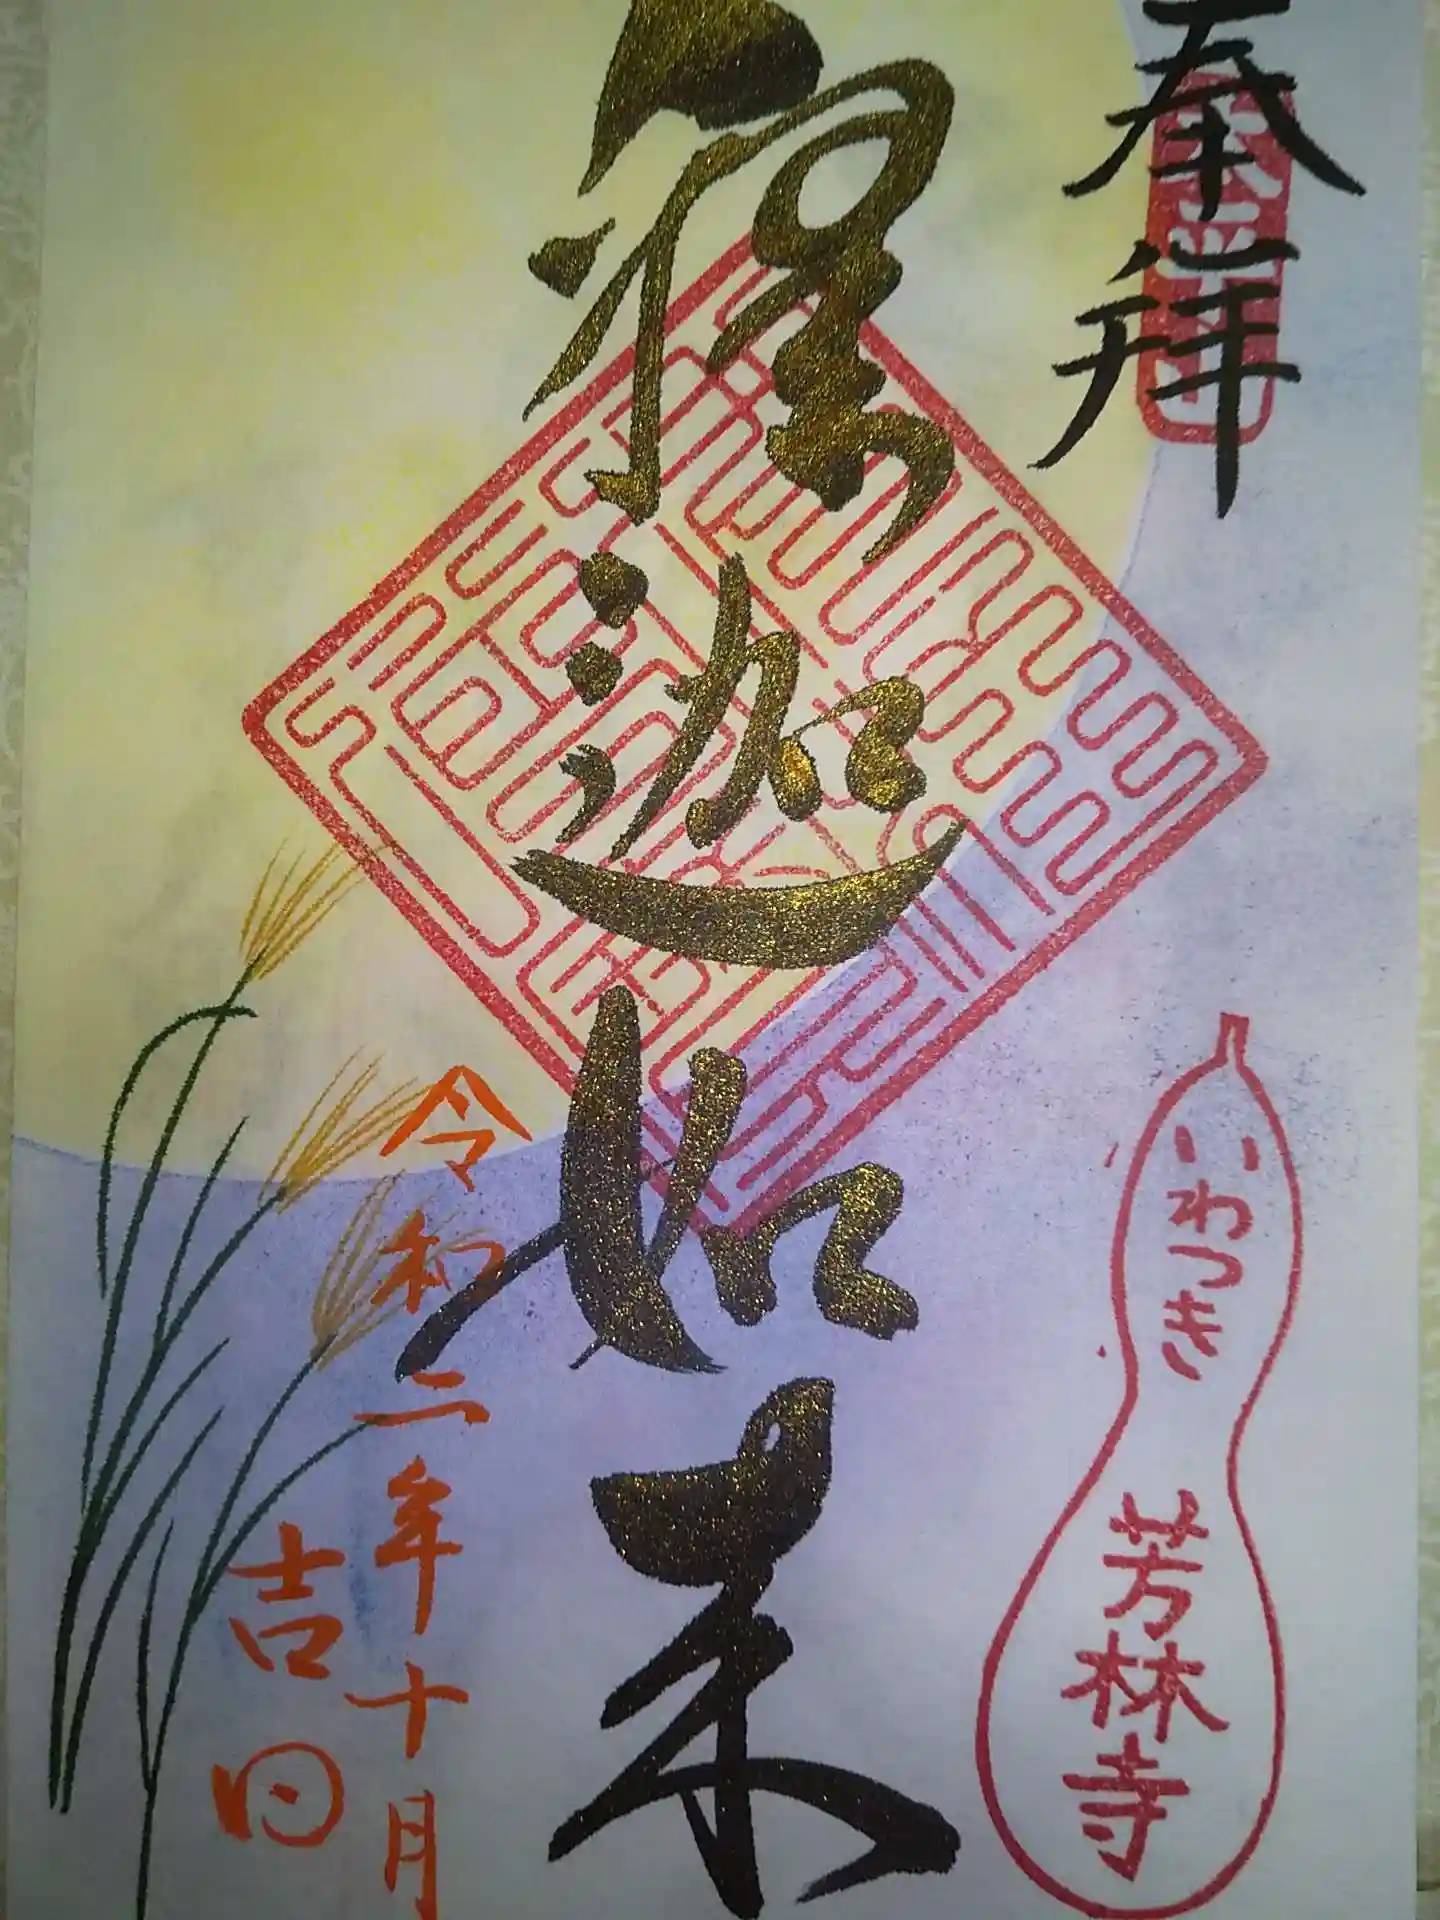 奉拝
釈迦如来
令和二年十月
吉日
いわつき
芳林寺